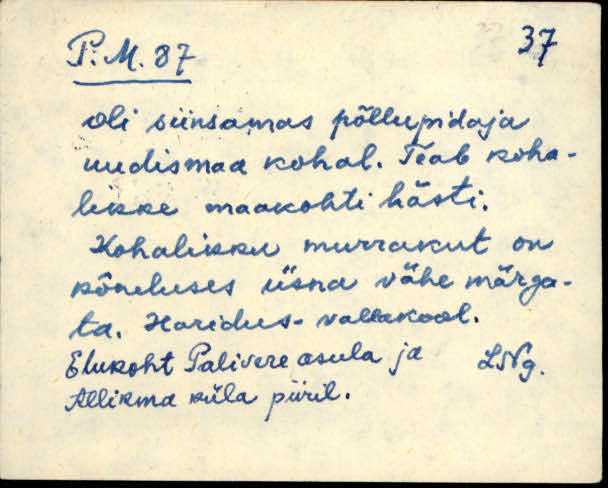 P. M. 87
37
oli siinsamas põllupidaja
uudismaa kohal. Teab koha-
likke maakohti hästi.
Kohalikku murrakut on
kõneluses üsna vähe märga-
ta. Haridus - vallakool.
Elukoht Palivere asula ja
LNg.
Allikma küla piiril.